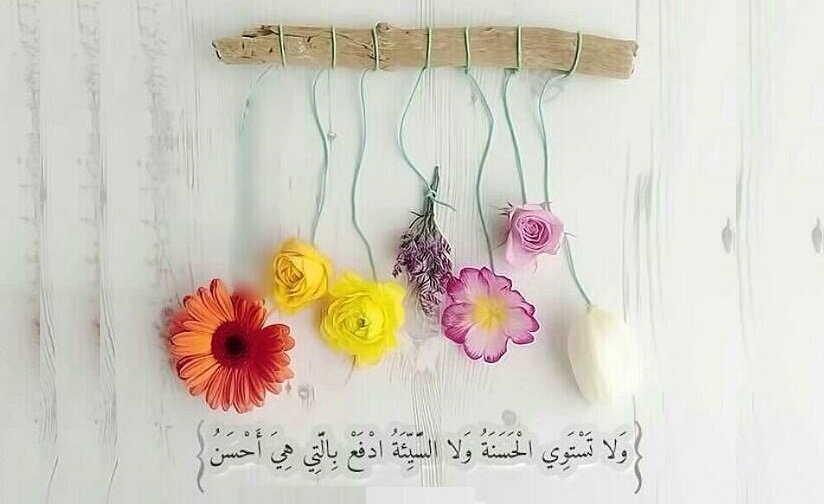 {وَلا تَسْتَوِي الْحَسَنَةُ وَلا السَّيِّئَةُ ادْفَعْ بِالَّتِي هِيَ أَحْسَنُ}